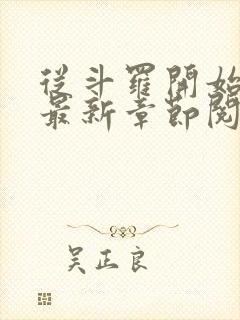 從斗羅開始
最新章節閱
吴正良